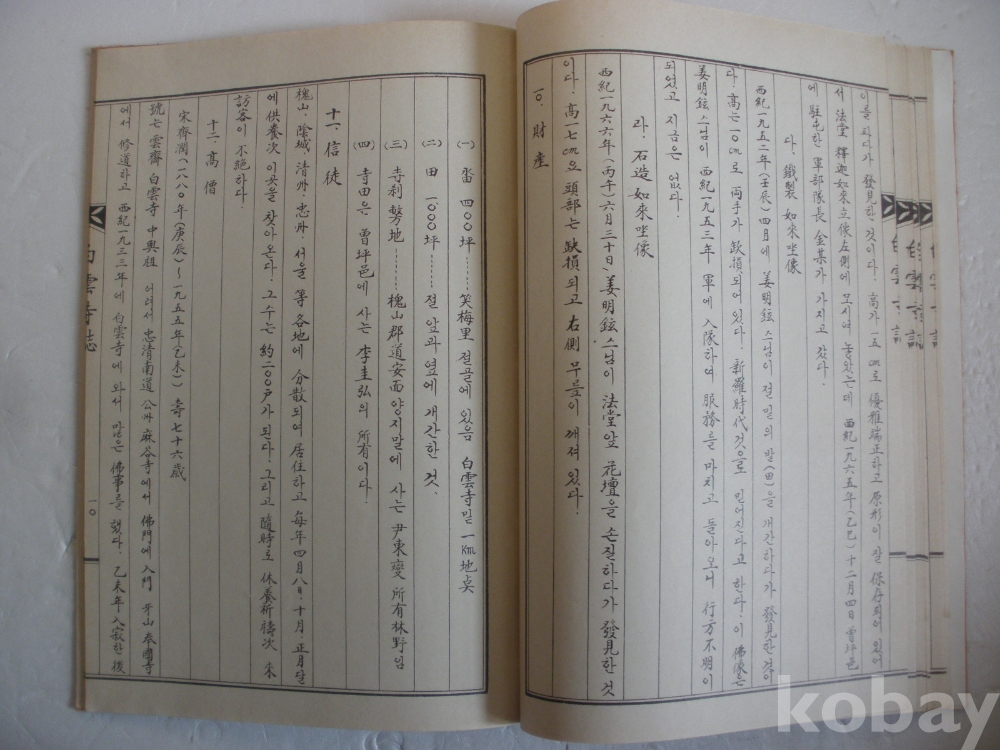 이를 파다가 發見한 것이다. 高가 一五㎝로 優雅端正하고 原形이 잘 保存되어 있어
서 法堂 釋迦如來立像左側에 모시여 놓았는데 西紀一九六五年(乙巳)十二月四日 曽坪邑
에 駐屯한 軍部隊長 金某가 가지고 갔다.
다. 鐵製 如來坐像
西紀一九五二年(壬辰)四月에 姜明鉉스님이 절밑의 밭(田)을 개간하다가 發見한 것이
다. 高는 一○㎝로 両手가 欽損되어 있다. 新羅時代것으로 믿어진다고 한다. 이 佛像은
姜明鉉스님이 西紀一九五三年 軍에 入隊하여 服務를 마치고 돌아오니 行方不明이
되었고 지금은 없다.
라. 石造如來坐像
西紀一九六六年(丙午)六月三十日) 姜明鉉스님이 法堂앞 花壇을 손질하다가 發見한 것
이다. 高一七㎝요 頭部는 缺損되고 右側 무릎이 깨져 있다.
一○. 財産
(一) 畓 四○○坪 …… 笑梅里 절골에 있음 白雲寺밑 一㎞地点
(二) 田 一○○坪 …… 절 앞과 옆에 개간한 것.
(三) 寺刹 敷地 …… 槐山郡道安面양지말에 사는 尹東燮 所有林野임
(四) 寺田은 曽坪邑에 사는 李圭弘의 所有이다.
十一. 信徒
槐山. 陰城. 清州. 忠州. 서울 等 各地에 分散되여 居住하고 毎年 四月八日. 十月. 正月달
에 供養次 이곳을 찾아온다. 그 수는 約二○○戶가 된다. 그리고 隨時로 休養祈禱次 来
訪客이 不絶하다.
十二. 高僧
宋齊潤(一八八○年(庚辰)~一九五五年(乙未)) 壽七十六歳
號는 雲齊 白雲寺 中興祖 어려서 忠清南道 公州 麻谷寺에서 佛門에 入門 牙山 奉國寺
에서 修道하고 西紀一九三三年에 白雲寺에 와서 많은 佛事를 했다. 乙未年 入寂한 後
白雲寺誌
一○
kobay